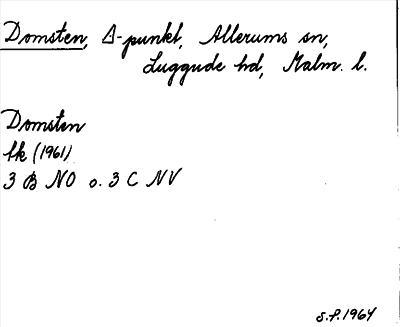 Domsten, Δ-punkt, Allerums sn,
Luggude hd, Malm. l.
Domsten
Ek (1961)
3 B NO o. 3 C NV
S.F. 1964